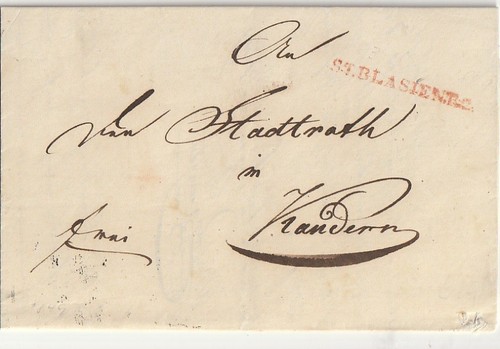 An
ST.BLASIEN.R.2.
den Stadtrath
in
Kandern
frei